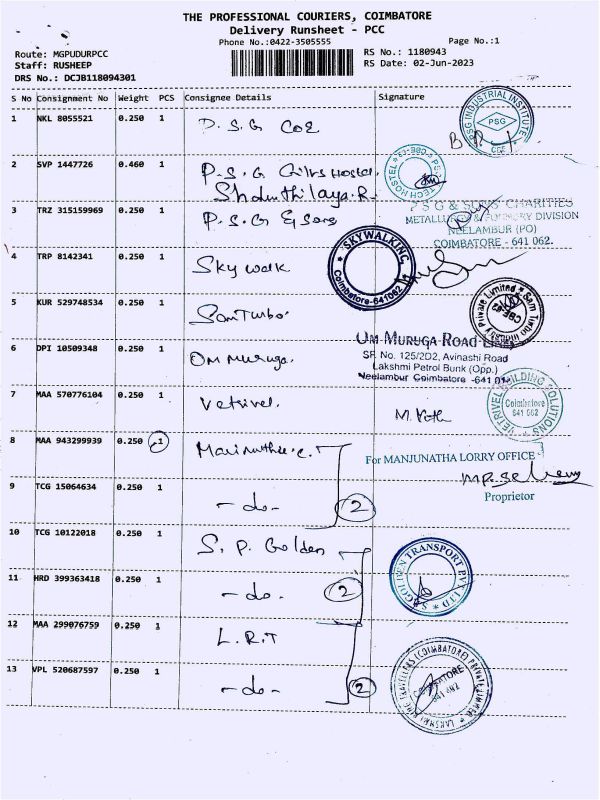 THE PROFESSIONAL COURIERS, COIMBATORE
Delivery Runsheet - PCC
Phone No.:0422-3505555
Page No.:1
Route: MGPUDURPCC
Staff: RUSHEEP
DRS No.: DCJB118094301
RS No.: 1180943
RS Date: 02-Jun-2023
S No Consignment No Weight PCS Consignee Details Signature
1 NKL 8055521 0.250 1 P.S.G COE
PSG INDUSTRIAL INSTITUTE
PSG
CBE
2 SVP 1447726 0.460 1 P.S.G Girls Hostel.
PSG TECH HOSTEL CBE
3 TRZ 315159969 0.250 1 P.S.G & Sons
P S G & SONS' CHARITIES
METALLURGY & FOUNDRY DIVISION
NEELAMBUR (PO)
COIMBATORE - 641 062.
4 TRP 8142341 0.250 1 Sky walk
SKYWALKING
Coimbatore-641062
5 KUR 529748534 0.250 1 Sam Turbo.
Sam Turbo Industry Private Limited
CBE-62
6 DPI 10509348 0.250 1 Om muruga.
OM MURUGA ROAD LINES
SF No. 125/2D2, Avinashi Road
Lakshmi Petrol Bunk (Opp.)
Neelambur Coimbatore -641 0
7 MAA 570776104 0.250 1 Vetrivel.
VETRIVEL BUILDING SOLUTIONS
Coimbatore
641 062
8 MAA 943299939 0.250 1
For MANJUNATHA LORRY OFFICE
Proprietor
9 TCG 15064634 0.250 1 -do- 2
10 TCG 10122018 0.250 1 S. P. Golden
GOLDEN TRANSPORT PVT LTD
11 HRD 399363418 0.250 1 -do. 2
12 MAA 299076759 0.250 1 L.R.T
13 VPL 520687597 0.250 1 -do- 2
LAKSHMI RING TRAVELLERS (COIMBATORE) PRIVATE LIMITED
COIMBATORE
641 062